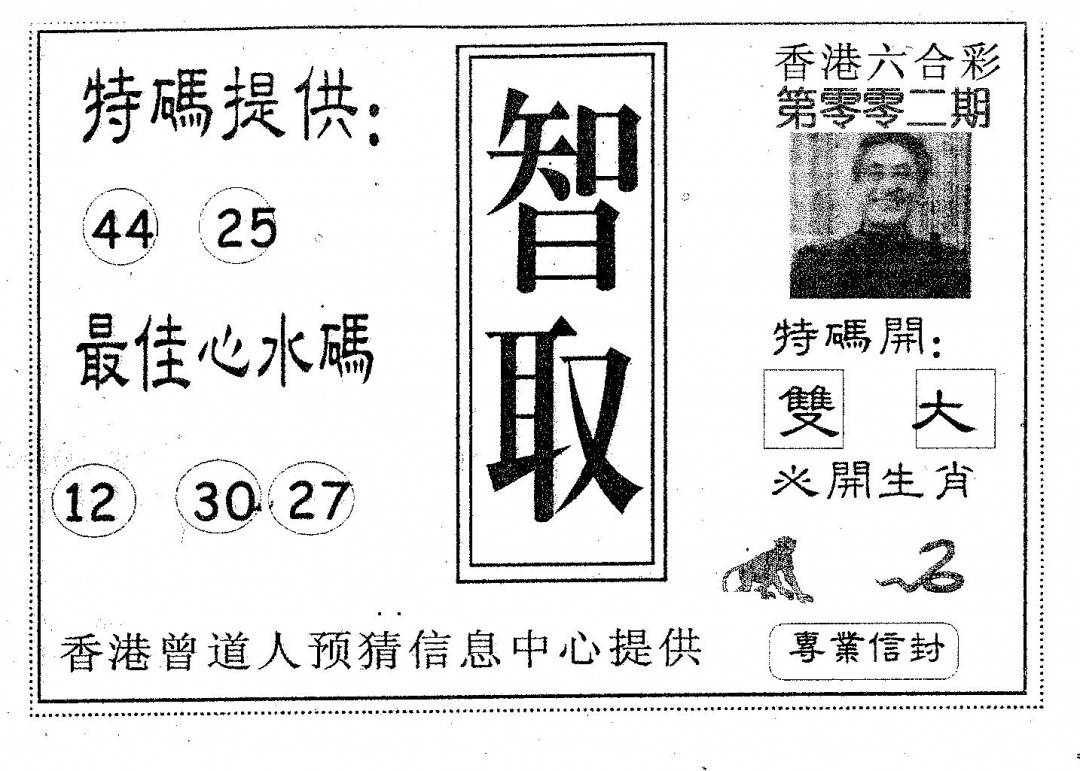 特碼提供：
44 25
最佳心水碼
12 30 27
智取
香港六合彩
第零零二期
特碼開：
雙 大
必開生肖
香港曾道人预猜信息中心提供
專業信封